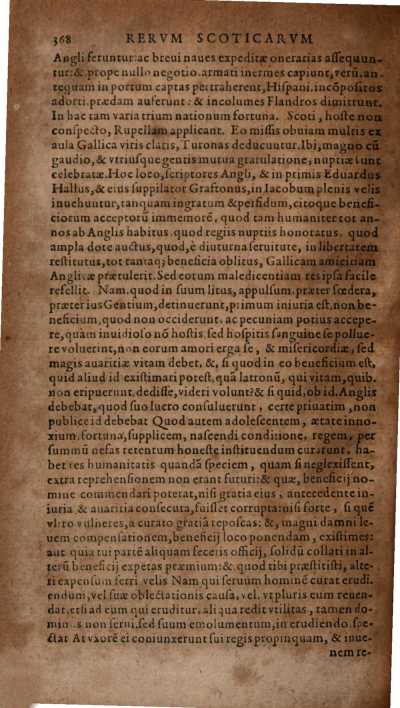 368 RERVM SCOTICARVM
Angli feruntur: ac breui naues expeditæ onerarias assequun-
tur: & prope nullo negotio. armati inermes capiunt, verũ. an-
tequam in portum captas pertraherent, Hispani. incõpositos
adorti. prædam auferunt: & incolumes Flandros dimittunt.
In hac tam varia trium nationum fortuna. Scoti, hoste non
conspecto, Rupellam applicant. Eo missis obuiam multis ex
aula Gallica viris claris, Turonas deducuntur. Ibi, magno cũ
gaudio, & vtriusque gentis mutua gratulatione, nuptiæ sunt
celebratæ. Hoc loco, scriptores Angli, & in primis Eduardus
Hallus, & eius suppilator Graftonus, in Iacobum plenis velis
inuehuntur, tanquam ingratum & perfidum, citoque benefi-
ciorum acceptorũ immemorẽ, quod tam humaniter tot an-
nos ab Anglis habitus. quod regiis nuptiis honoratus. quod
ampla dote auctus, quod, è diuturna seruitute, in libertatem
restitutus, tot tantaq; beneficia oblitus, Gallicam amicitiam
Anglicæ prætulerit. Sed eorum maledicentiam res ipsa facile
refellit. Nam. quod in suum litus, appulsum. præter fœdera,
præter ius Gentium, detinuerunt, primum iniuria est, non be-
neficium, quod non occiderunt. ac pecuniam potius accepe-
re, quàm inuidioso nõ hostis, sed hospitis sanguine se pollue-
re voluerint, non eorum amori erga se, & misericordiæ, sed
magis auaritiæ vitam debet. &, si quod in eo beneficium est,
quid aliud id existimari potest. quã latronũ, qui vitam, quib.
non eripuerunt. dedisse, videri volunt? & si quid, ob id. Anglis
debebat, quod suo lucro consuluerunt, certe priuatim, non
publice id debebat Quod autem adolescentem, ætate inno-
xium. fortuna, supplicem, nascendi conditione, regem, per
summũ nefas retentum honeste instituendum curarunt. ha-
bet res humanitatis quandã speciem, quam si neglexissent,
extra reprehensionem non erant futuri: & quæ, beneficij no-
mine commendari poterat, nisi gratia eius, antecedente in-
iuria & auaritia consecuta, fuisset corrupta: nisi forte, si quẽ
vltro vulneres, a curato gratiã reposcas: &, magni damni le-
uem compensationem, beneficij loco ponendam, existimes:
aut quia tui partẽ aliquam feceris officij, solidũ collati in al-
terũ beneficij expetas præmium: & quod tibi præstitisti, alte-
ri expensum ferri velis Nam qui seruum hominẽ curat erudi-
endum, vel suæ oblectationis causa, vel, vt pluris eum reuen-
dat, etsi ad eum qui eruditur. aliqua redit vtilitas, tamen do-
minus non serui. sed suum emolumentum, in erudiendo. spe-
ctat At vxorẽ ei coniunxerunt sui regis propinquam, & iuue-
nem re-